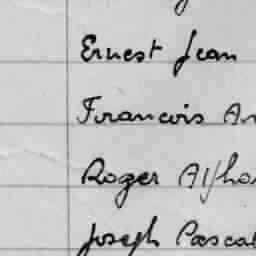 Ernest Jean
Francois
Roger
Joseph Pascal